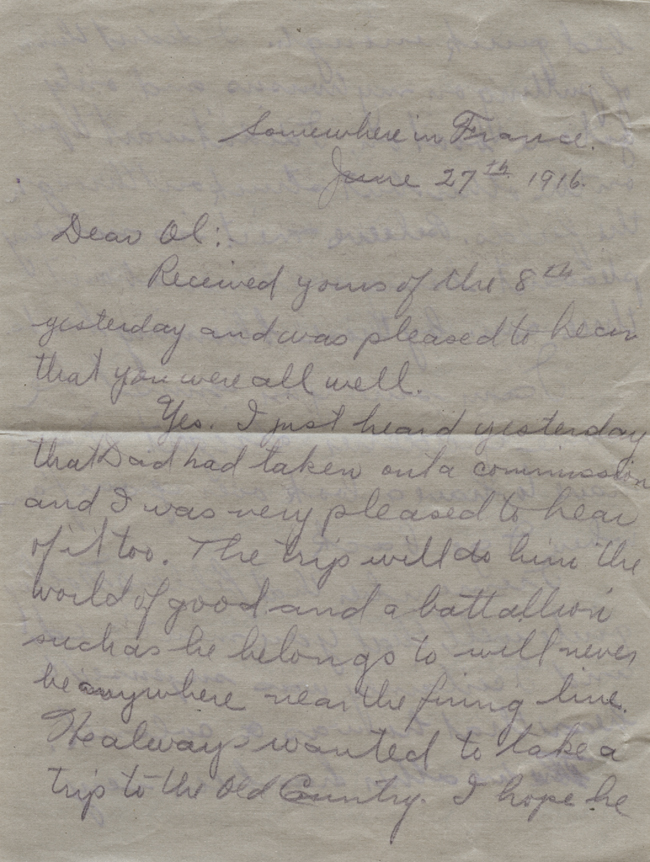 Somewhere in France.
June 27th 1916.
Dear Ol:
Received yours of the 8th
yesterday and was pleased to hear
that you were all well.
Yes. I just heard yesterday
that Dad had taken out a commission
and I was very pleased to hear
of it too. The trip will do him the
world of good and a battallion
such as he belongs to will never
be anywhere near the firing line.
He always wanted to take a
trip to the Old Country. I hope he